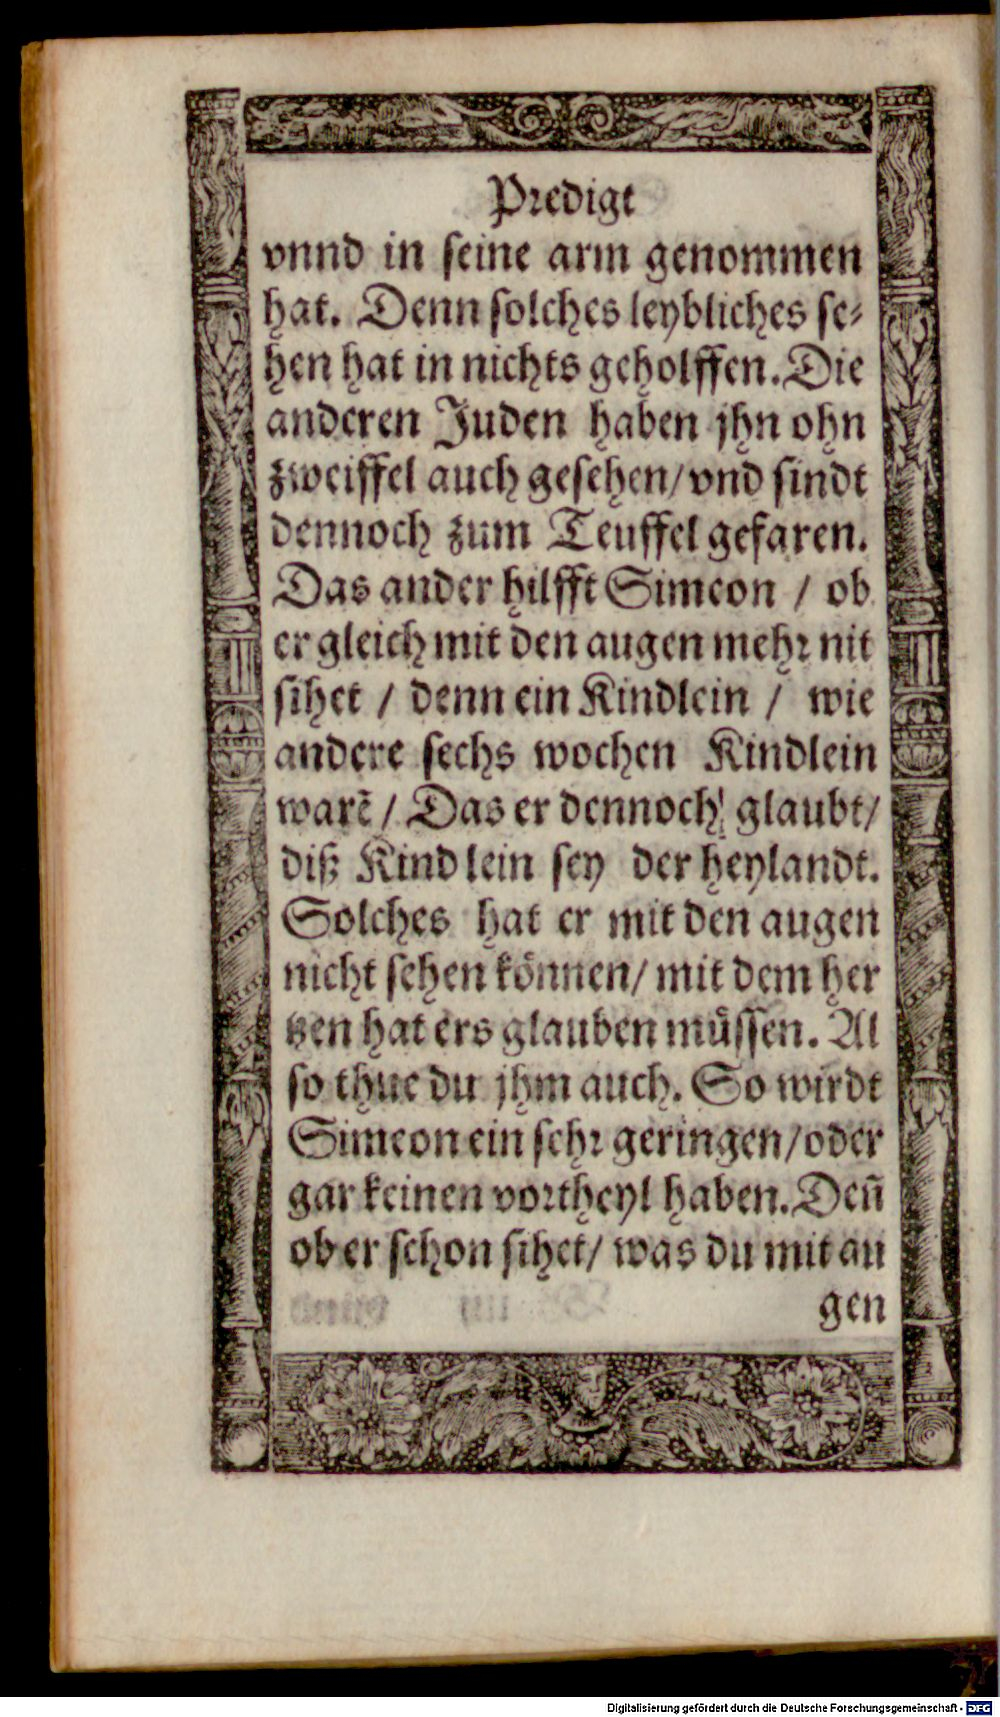 Predigt
vnnd in seine arm genommen
hat. Denn solches leybliches se⸗
hen hat in nichts geholffen. Die
anderen Juden haben jhn ohn
zweiffel auch gesehen/ vnd sindt
dennoch zum Teuffel gefaren.
Das ander hilfft Simeon / ob
er gleich mit den augen mehr nit
sihet / denn ein Kindlein / wie
andere sechs wochen Kindlein
warẽ / Das er dennoch glaubt/
diß Kindlein sey der heylandt.
Solches hat er mit den augen
nicht sehen koͤnnen/ mit dem her
tzen hat ers glauben muͤssen. Al
so thue du jhm auch. So wirdt
Simeon ein sehr geringen/ oder
gar keinen vortheyl haben. Deñ
ob er schon sihet/ was du mit au
gen
Digitalisierung gefördert durch die Deutsche Forschungsgemeinschaft - DFG